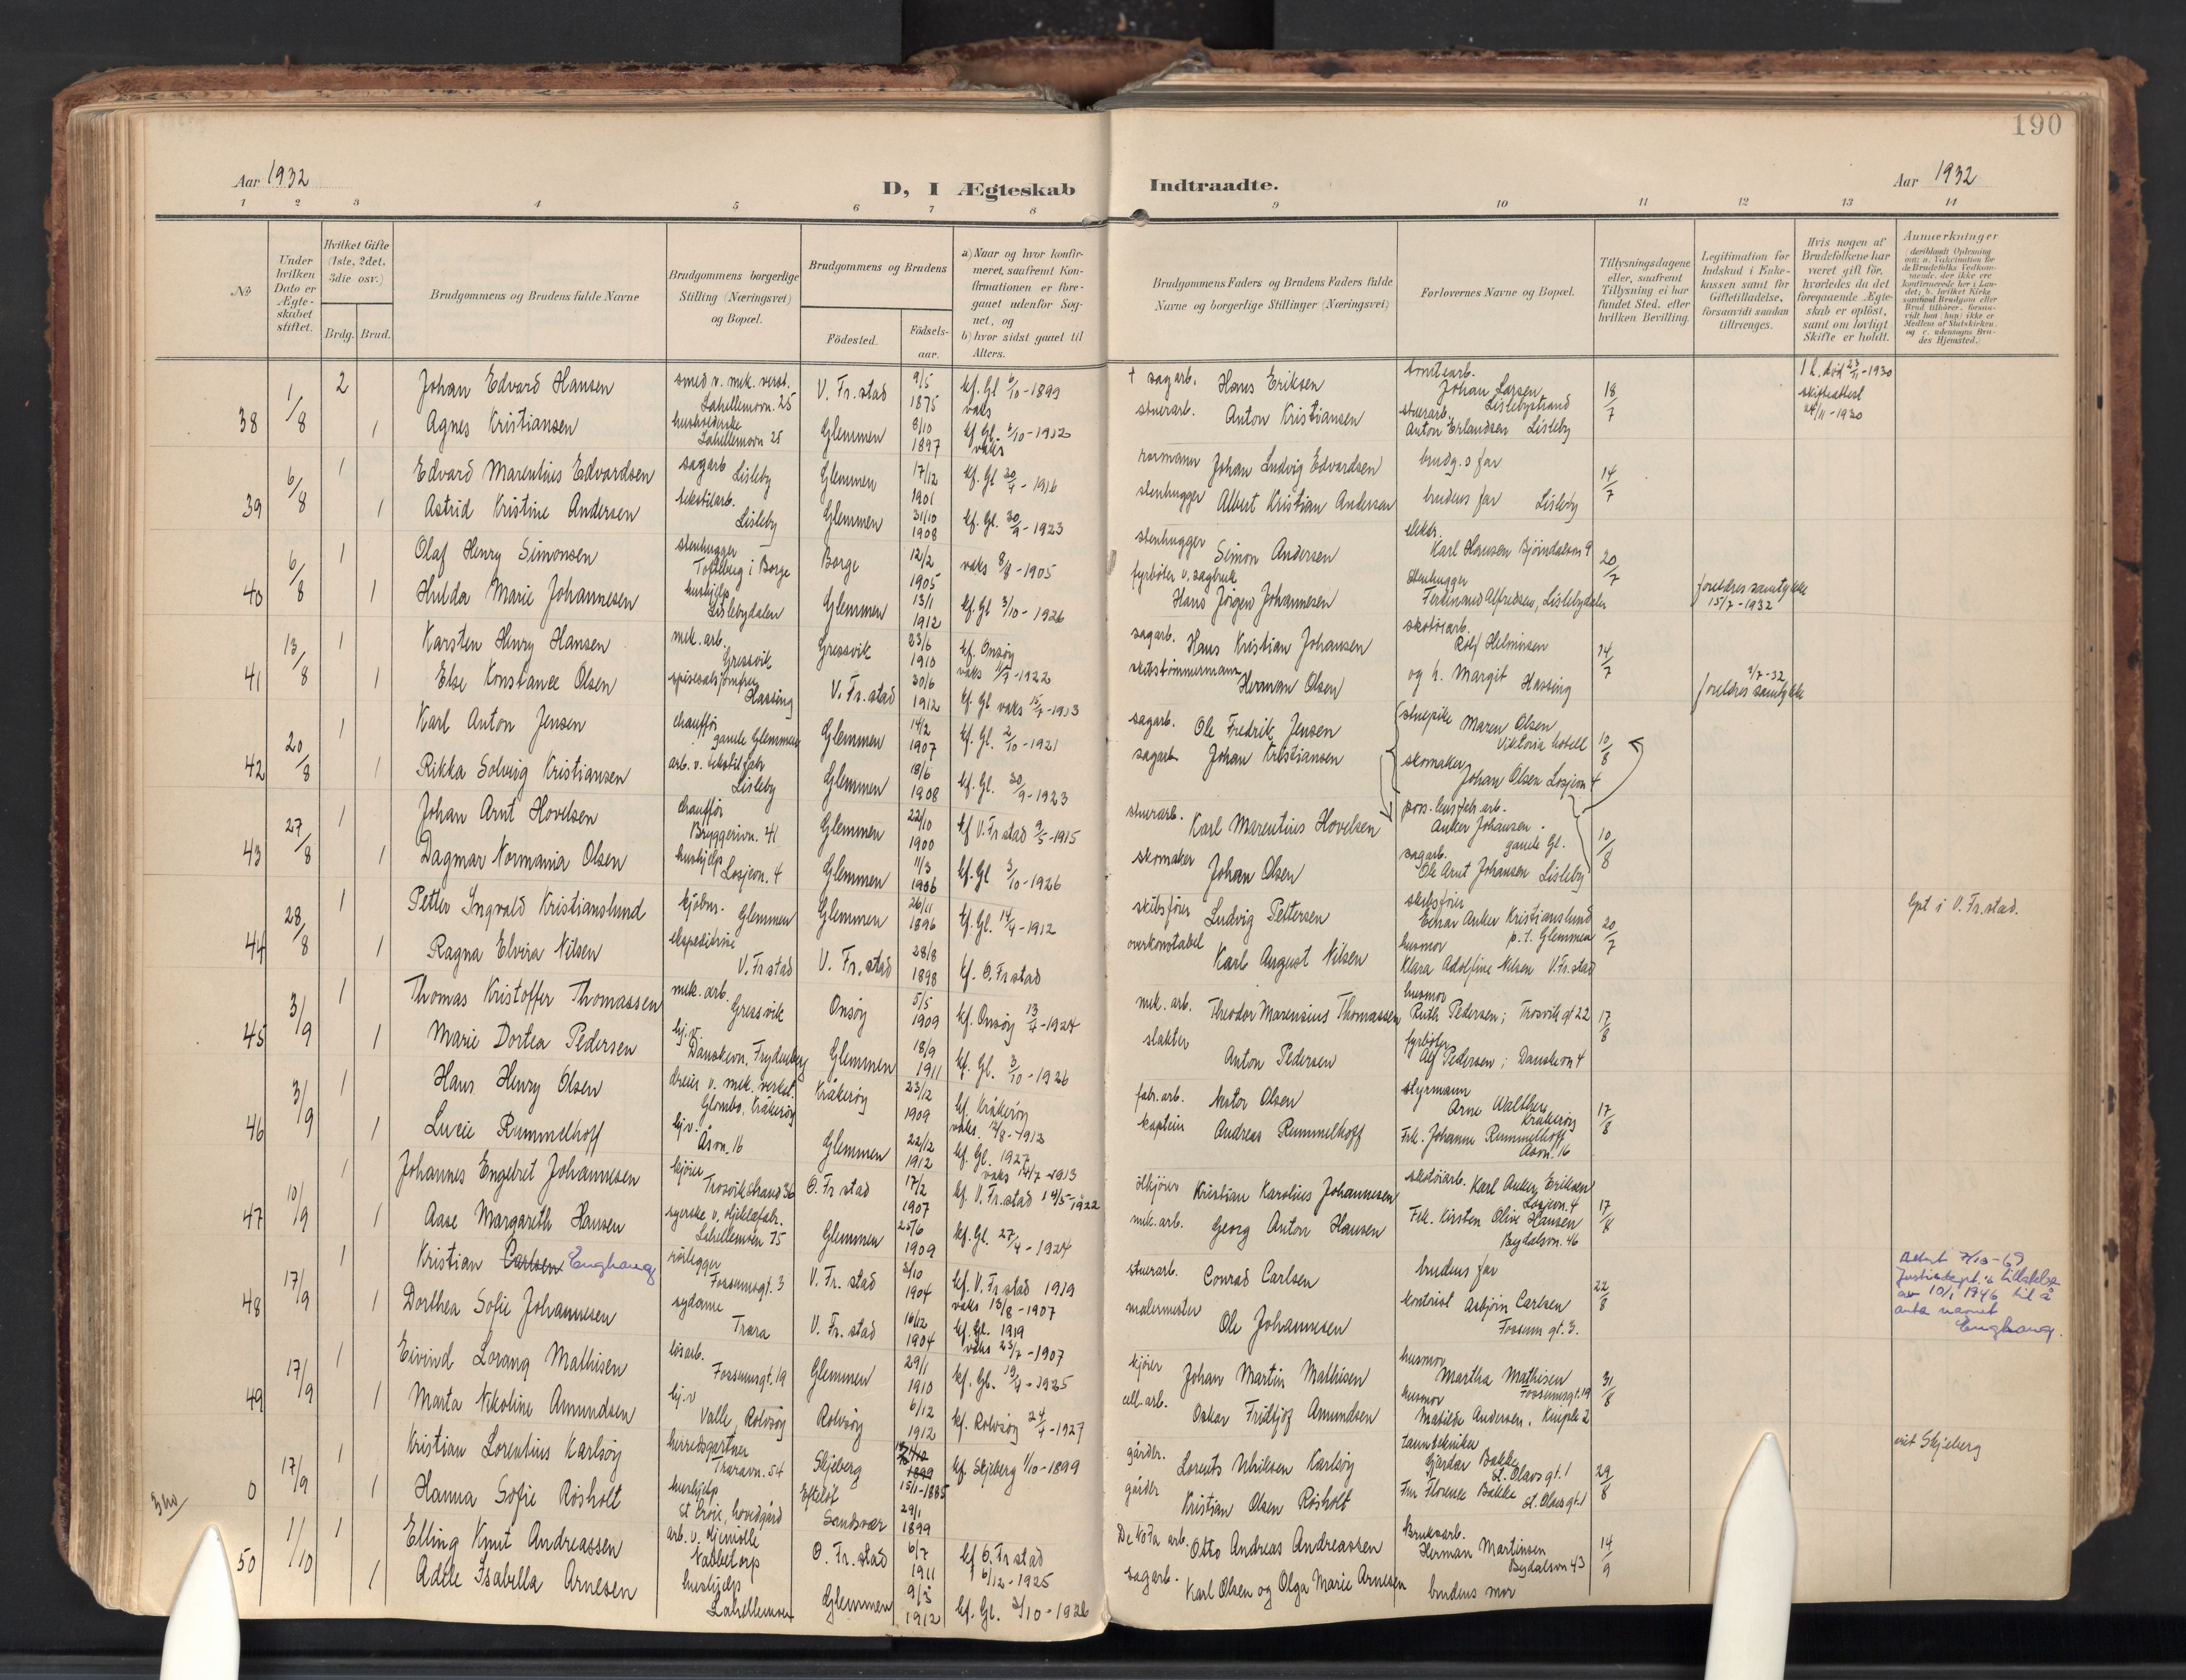 190
Aar 1932
D, I Ægteskab Indtraadte.
Aar 1932
1 2 3 4 5 6 7 8 9 10 11 12 13 14
No
Under hvilken Dato er Ægteskabet stiftet.
Hvilket Gifte (1ste, 2det, 3die osv.)
Brdg. Brud.
Brudgommens og Brudens fulde Navne
Brudgommens borgerlige Stilling (Næringsvei) og Bopæl.
Brudgommens og Brudens
Fødested.
Fødselsaar.
a) Naar og hvor konfirmeret, saafremt Konfirmationen er foregaaet udenfor Sognet, og
b) hvor sidst gaaet til Alters.
Brudgommens Faders og Brudens Faders fulde Navne og borgerlige Stillinger (Næringsvei)
Forlovernes Navne og Bopæl.
Tillysningsdagene eller, saafremt Tillysning ei har fundet Sted, efter hvilken Bevilling.
Legitimation for Indskud i Enkekassen samt for Giftetilladelse, forsaavidt saadan tiltrænges.
Hvis nogen af Brudefolkene har været gift før, hvorledes da det foregaaende Ægteskab er opløst, samt om lovligt Skifte er holdt.
Anmerkninger
38 1/8 2 Johan Edvard Hansen smed v. mek. verst. Lahellemovn. 25 V. Fr.stad 9/5 1875 kf. Gl. vaks † sagarb. Hans Eriksen Johan Larsen Lislebystrand 18/7
1 Agnes Kristiansen Lahellemovn 25 Glemmen 8/10 1897 kf Gl. 1/10-1912 vaks stuerarb. Anton Kristiansen stuerarb. Anton Erlandsen Lisleby
39 6/8 1 Edvard Marentius Edvardsen sagarb Lisleby Glemmen 17/12 1901 kf. Gl 30/4-1916 Johan Ludvig Edvardsen brudg.s far 14/7
1 Astrid Kristine Andersen tekstilarb. Lisleby Glemmen 31/10 1908 kf. Gl. 30/9-1923 stenhugger Albert Kristian Andersen brudens far Lisleby
40 6/8 1 Olaf Henry Simonsen stenhugger i Borge Borge 12/2 1905 vaks 8/8-1905 stenhugger Simon Andersen elektr. Karl Hansen Bjørndalsvn 9 20/7
1 Hulda Marie Johannesen hushjelp Lislebydalen Glemmen 13/1 1912 kf. Gl 3/10-1926 fyrbøter v. sagbruk Hans Jørgen Johannesen stenhugger Ferdinand Alfredsen, Lislebydalen foreldres samtykke 15/7-1932
41 13/8 1 Karsten Henry Hansen mek. arb. Gressvik Gressvik 23/6 1910 kf. Onsøy sagarb. Hans Kristian Johansen skotøiarb. Rolf Helmersen 14/7
1 Else Konstance Olsen spisesalsjomfru Hassing V. Fr.stad 30/6 1912 kf. Gl vaks 15/7-1913 skibstømmermann Herman Olsen og h. Margit Hassing foreldres samtykke
42 20/8 1 Karl Anton Jensen chauffør gamle Glemmen Glemmen 14/2 1907 kf. Gl. 2/10-1921 sagarb. Ole Fredrik Jensen stuepike Maren Olsen Viktoria hotell 10/8
1 Rikka Solveig Kristiansen arb. v. tekstilfabr Lisleby Glemmen 18/6 1908 kf. Gl. 30/9-1923 sagarb Johan Kristiansen skomaker Johan Olsen Losjevn 4
43 27/8 1 Johan Arnt Hovelsen chauffør Bryggerivn. 41 Glemmen 22/10 1900 kf V. Fr stad 9/5-1915 stuerarb. Karl Marentius Hovelsen Anker Johansen gamle Gl. 10/8
1 Dagmar Normania Olsen hushjelp Losjevn. 4 Glemmen 11/3 1906 kf. Gl 3/10-1926 skomaker Johan Olsen sagarb. Ole Arnt Johansen Lisleby
44 28/8 1 Petter Ingvald Kristianslund kjøbm. Glemmen Glemmen 26/11 1896 kf. Gl. 14/4-1912 skibsfører Ludvig Pettersen skibsfører Einar Anker Kristianslund p.t. Glemmen 20/7 V. Fr.stad.
1 Ragna Elvira Nilsen ekspeditrise V. Fr stad V. Fr. stad 28/8 1898 kf. Ø. Fr stad overkonstabel Karl August Nilsen husmor Klara Adolfine Nilsen V. Fr. stad
45 3/9 1 Thomas Kristoffer Thomassen mek. arb. Gressvik Onsøy 5/5 1909 kf. Onsøy 13/4-1924 mek. arb. Theodor Marensius Thomassen husmor Ruth Pedersen; Trosvik gt 22 17/8
1 Marie Dortea Pedersen hj.v. Danskevn. Frydenberg Glemmen 18/9 1911 kf. Gl. 3/10-1926 slakter Anton Pedersen fyrbøter Alf Pedersen; Danskevn 4
46 3/9 1 Hans Henry Olsen dreier v. mek. verkst. Glombo, Kråkerøy Kråkerøy 23/12 1909 kf. Kråkerøy vaks. fabr. arb. Nestor Olsen styrmann Arne Walther Kråkerøy 17/8
1 Lucie Rummelhoff hj.v. Åsvn. 16 Glemmen 22/12 1912 kf. Gl. 1927 vaks 14/7-1913 kaptein Andreas Rummelhoff Frk. Johanne Rummelhoff Åsvn. 16
47 10/9 1 Johannes Engebret Johannesen kjører Trosvikstrand 36 Ø. Fr stad 17/2 1907 kf. V. Fr. stad 14/5-1922 ølkjører Kristian Karolius Johannesen skotøiarb. Karl Anker Eriksen Losjevn. 4 17/8
1 Aase Margareth Hansen syerske v. Lahellemovn 75 Glemmen 25/6 1909 kf. Gl. 27/4-1924 mek. arb. Georg Anton Hansen Frk. Kirsten Olive Hansen Bydalsvn. 46
48 17/9 1 Kristian Carlsen Enghaug rørlegger Fossumsgt. 3 V. Fr. stad 3/10 1904 kf. V. Fr stad 1919 vaks 13/8-1907 stuerarb. Conrad Carlsen brudens far 22/8
Justisdept.s tillatelse av 10/1 1946 til å anta navnet Enghaug.
1 Dorthea Sofie Johannesen sydame Trara V. Fr. stad 16/12 1904 kf. Gl. 1919 vaks 23/7-1907 malermester Ole Johannesen kontorist Asbjørn Carlsen Fossum gt. 3.
49 17/9 1 Eivind Lorang Mathisen løsarb. Fossumsgt. 19 Glemmen 29/1 1910 kf. Gl. 19/4-1925 kjører Johan Martin Mathisen husmor Martha Mathisen Fossumsgt. 19 31/8
1 Marta Nikoline Amundsen hj.v Valle, Rolvsøy Rolvsøy 6/12 1912 kf. Rolvsøy 24/4-1927 cell. arb. Oskar Fridtjof Amundsen husmor Matilde Andersen, Kniple 2
0 17/9 1 Kristian Lorentius Karlsøy herredsgartner Traravn. 54 Skjeberg 1899 15/1-1885 kf. Skjeberg 1/10-1899 gårdbr. Lorents Ulriksen Karlsøy tanntekniker Gjerdar Bakke St. Olavsgt. 1 29/8 viet Skjeberg
1 Hanna Sofie Rösholt hushjelp Efteløt Sandsvær 29/1 1899 gårdbr Kristian Olsen Rösholt Fru Florence Bakke St. Olavsgt. 1
50 1/10 1 Elling Knut Andreassen arb. v. oljemølle Nabbetorp Ø. Fr. stad 6/7 1911 kf Ø. Fr stad 6/12-1925 De No Fa arb. Otto Andreas Andreassen Bruksarb. Herman Martinsen Bydalsvn 43 14/9
1 Adele Isabella Arnesen hushjelp Lahellemoen Glemmen 9/3 1912 kf. Gl. 3/10-1926 sagarb. Karl Olsen og Olga Marie Arnesen brudens mor